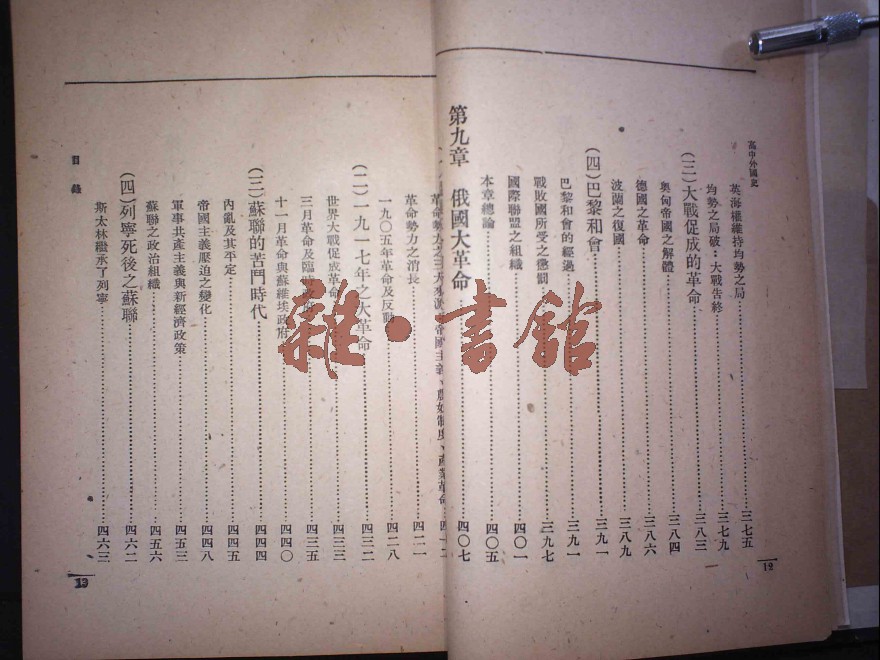 高中外國史
英海權維持均勢之局……三七五
均勢之局破：大戰告終……三七九
(三)大戰促成的革命……三八三
奧匈帝國之解體……三八四
德國之革命……三八六
波蘭之復國……三八九
(四)巴黎和會……三九一
巴黎和會的經過……三九一
戰敗國所受之懲罰……三九七
國際聯盟之組織……四〇一
本章總論……四〇五
第九章 俄國大革命……四〇七
12
革命勢力之消長……四二一
一九〇五年革命及反動……四二八
(二)一九一七年之大革命……四三二
世界大戰促成革命……四三三
三月革命及臨時政府……四三五
十一月革命與蘇維埃政府……四四〇
(三)蘇聯的苦鬥時代……四四四
內亂及其平定……四四五
帝國主義壓迫之變化……四四八
軍事共產主義與新經濟政策……四五三
蘇聯之政治組織……四五六
(四)列寧死後之蘇聯……四六二
斯太林繼承了列寧……四六三
目錄
13
雜·書館